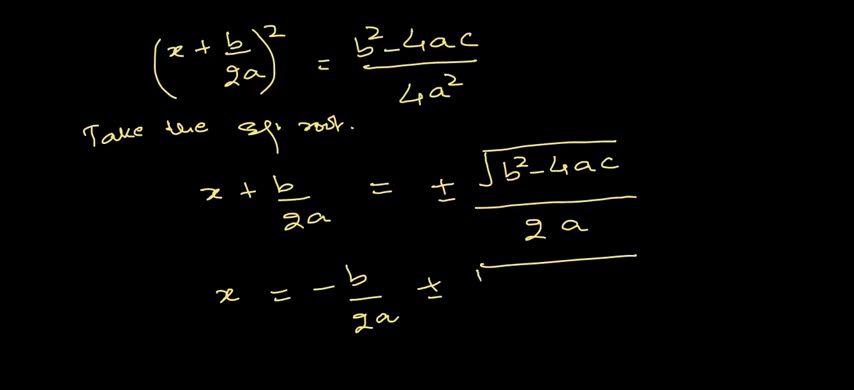 (x + b/2a)² = b² - 4ac/4a²
Take the sq. root.
x + b/2a = ± √b² - 4ac/2a
x = - b/2a ± √